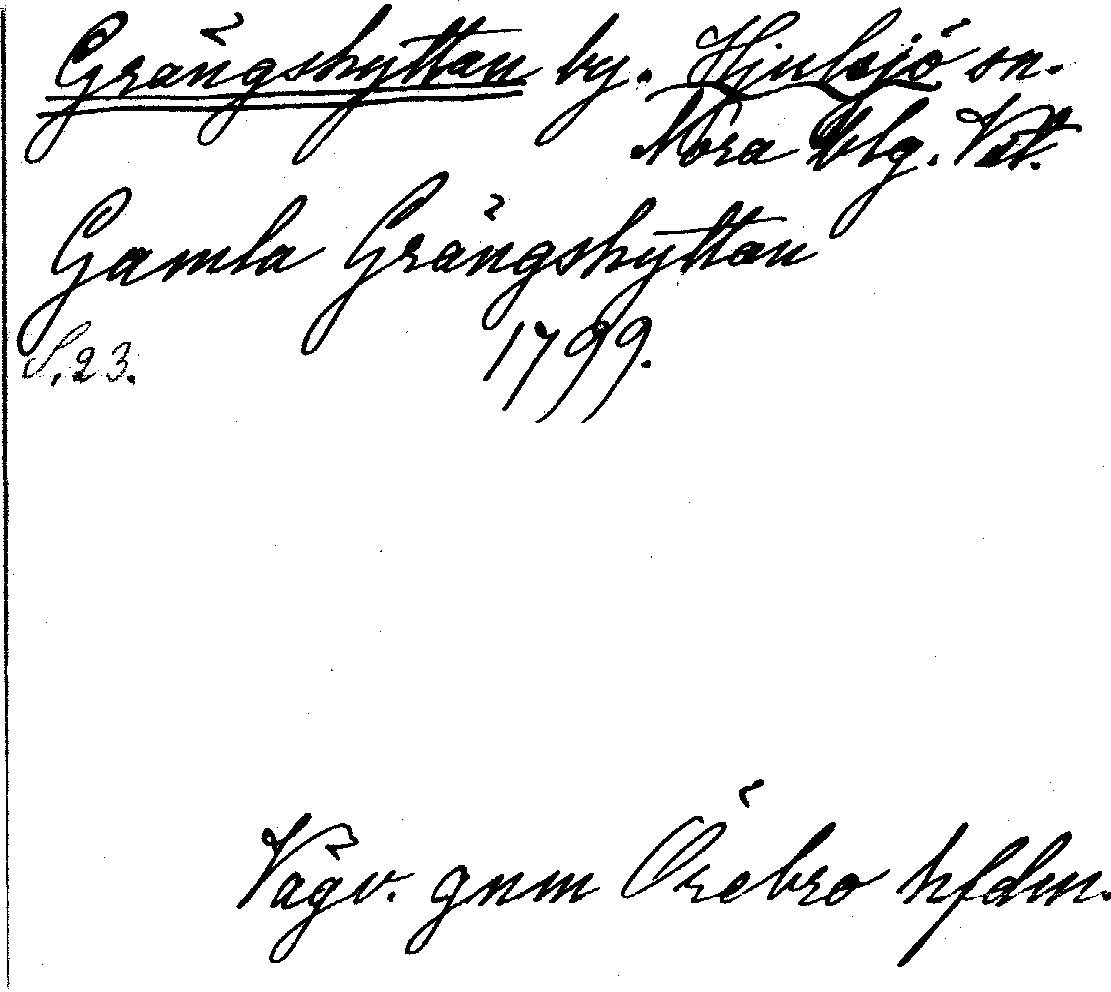 Grängshyttan by. Hjulsjö sn.
Nora blg. Vstm.
Gamla Grängshyttan
S. 23. 1799.
Vägv. gnm Örebro hfdm.